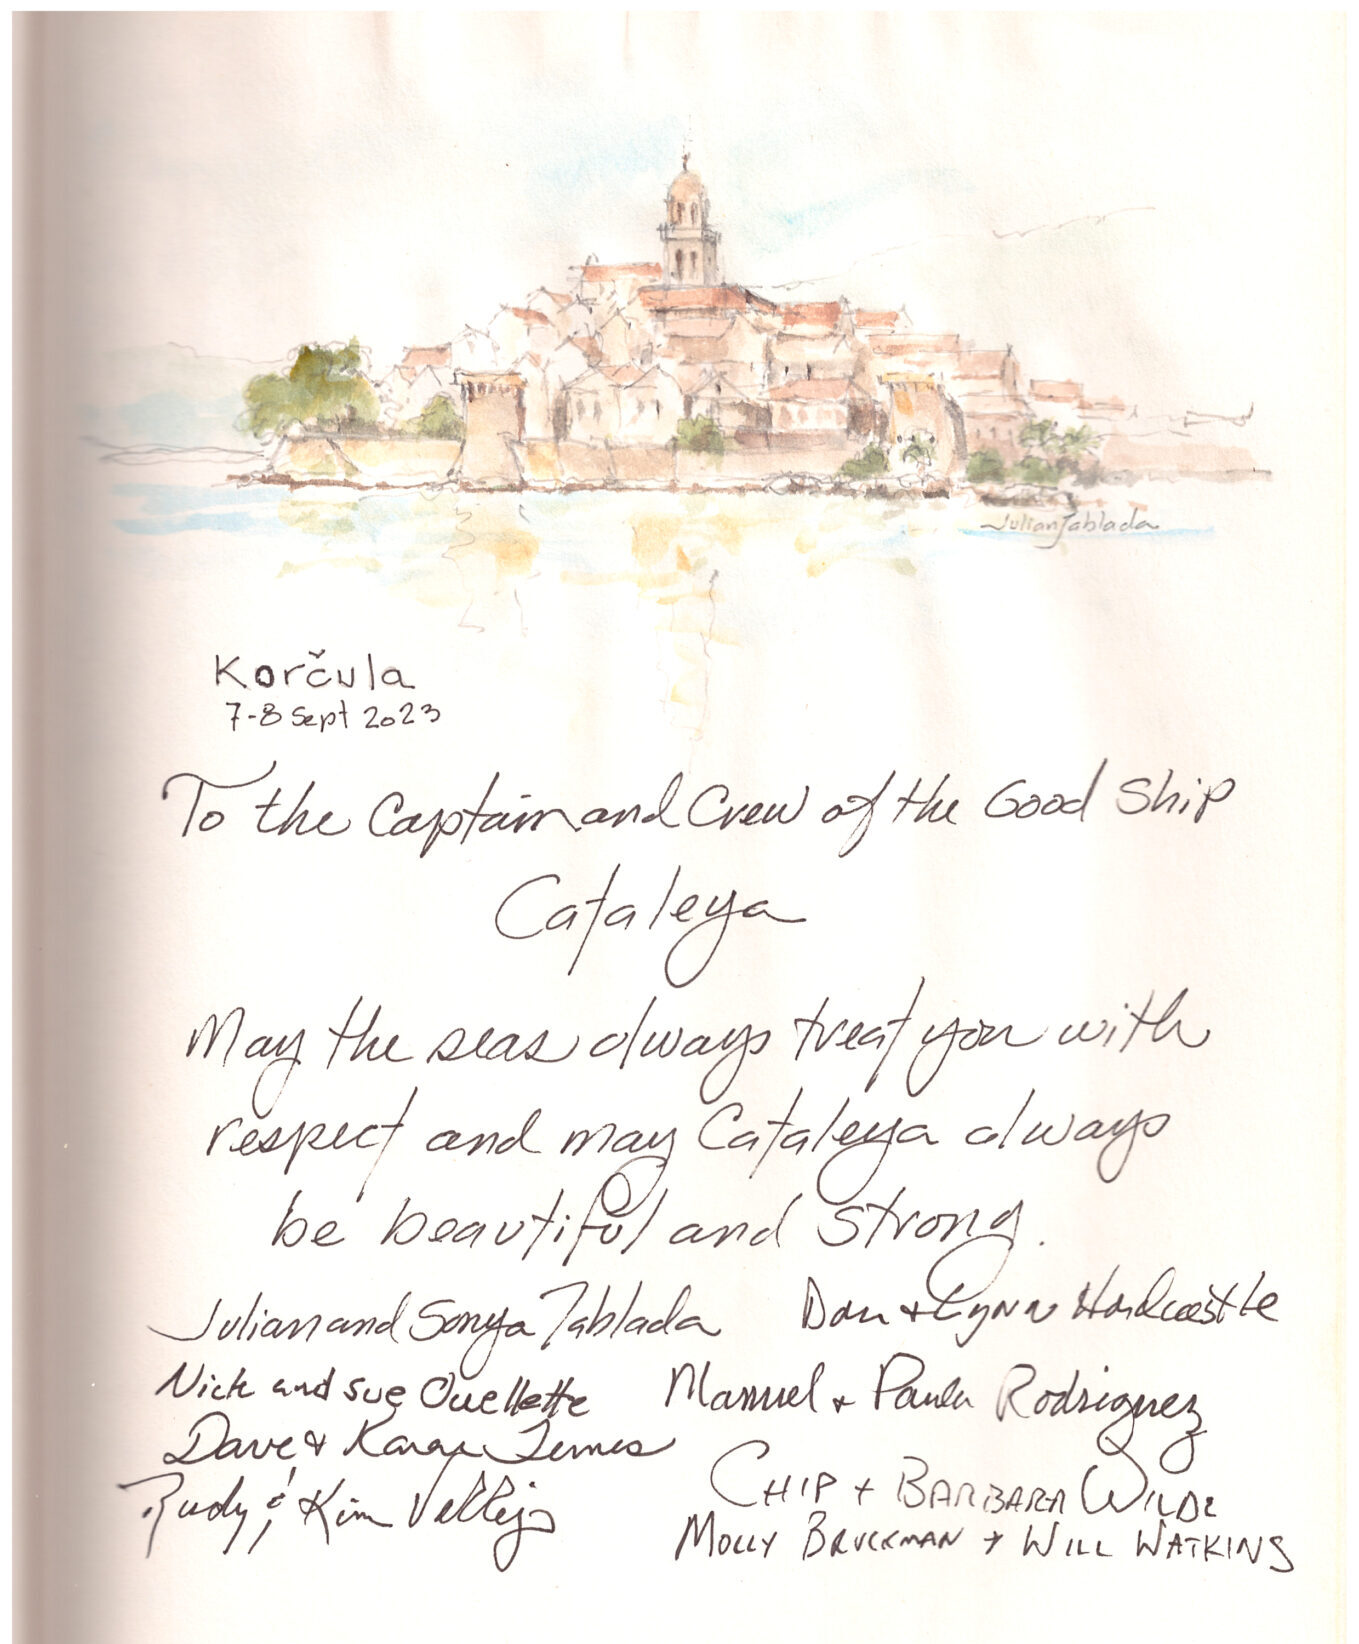 Julian Tablada
Korčula
7-8 Sept 2023
To the Captain and Crew of the Good Ship
Cataleya
May the seas always treat you with
respect and may Cataleya always
be beautiful and strong.
Julian and Sonya Tablada
Don + Lynn Hardcastle
Nick and Sue Ouellette
Manuel + Paula Rodriguez
Dave & Karen
CHIP + BARBARA WILDE
Rudy & Kim Vallejo
MOLLY BRUCKMAN + WILL WATKINS